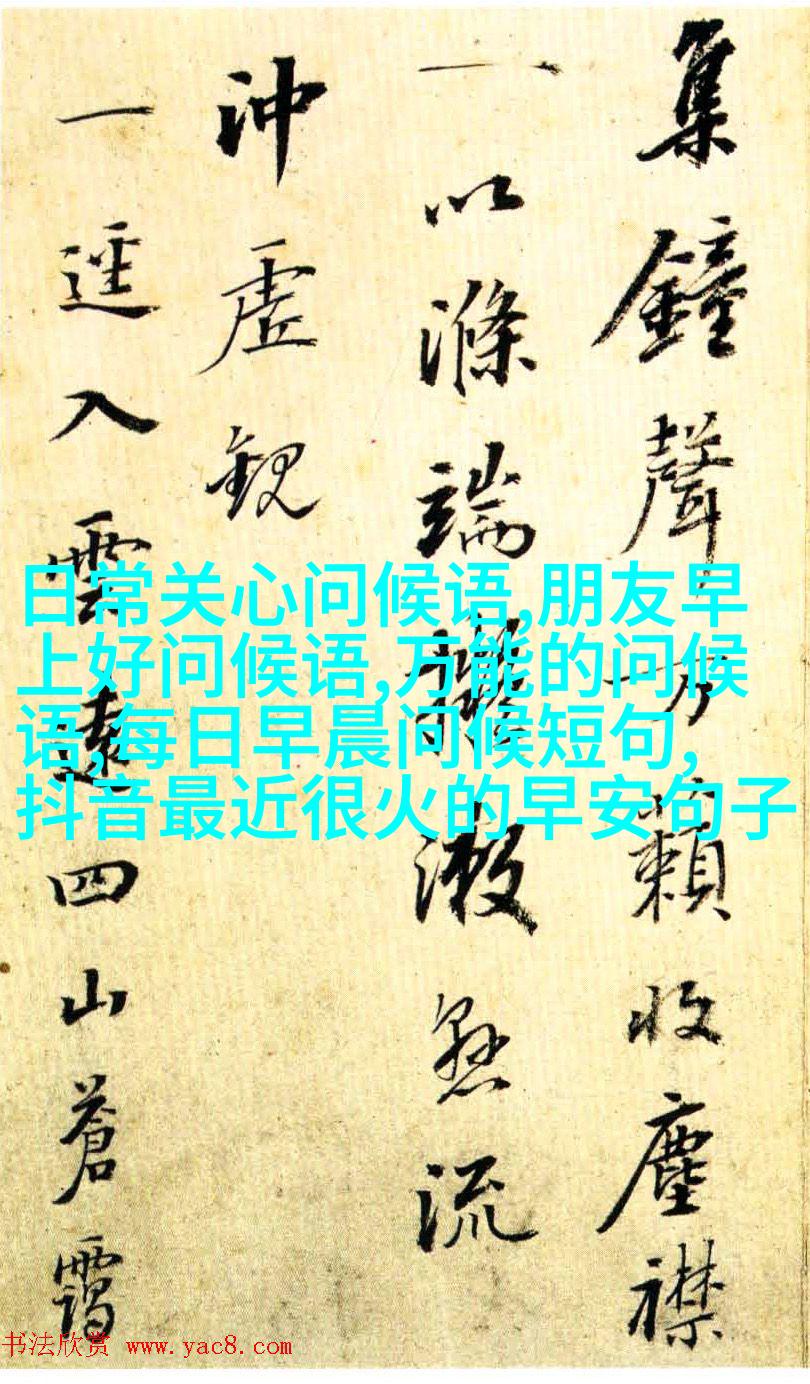 集鐘聲万籟收塵襟
一以滌端漱懸流
沖虛觀
一逕入雲遠四山蒼靄
日常关心问候语,朋友早
上好问候语,万能的问候
语,每日早晨问候短句,
抖音最近很火的早安句子
书法欣赏 www.yac8.com